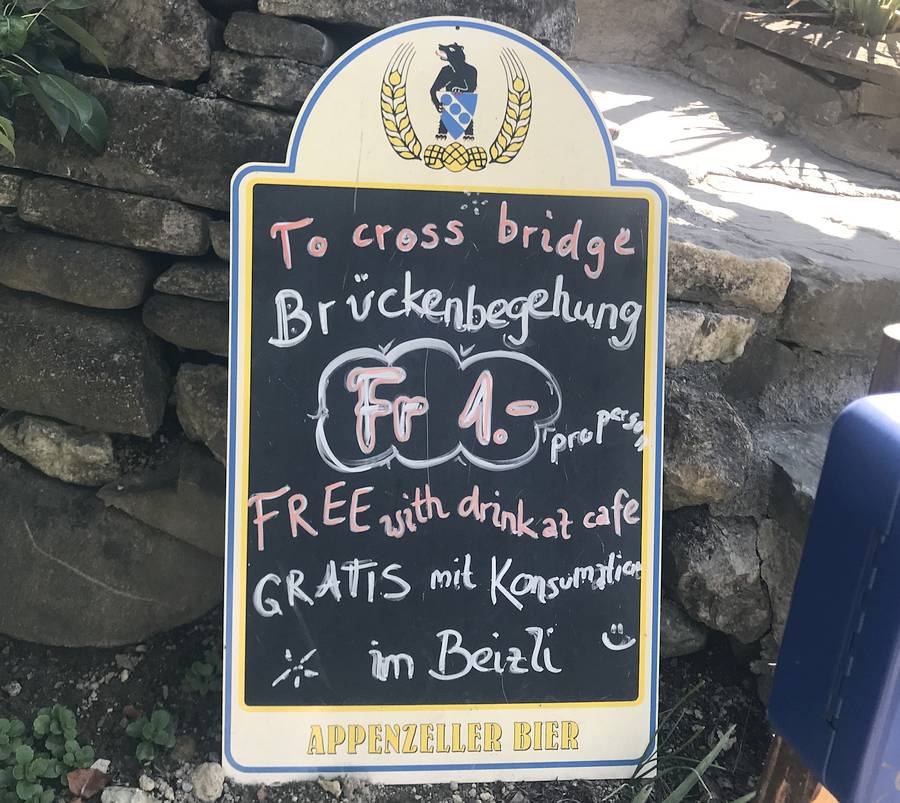 To cross bridge
Brückenbegehung
Fr 1.-
pro person
FREE with drink at cafe
GRATIS mit Konsumation
im Beizli
APPENZELLER BIER